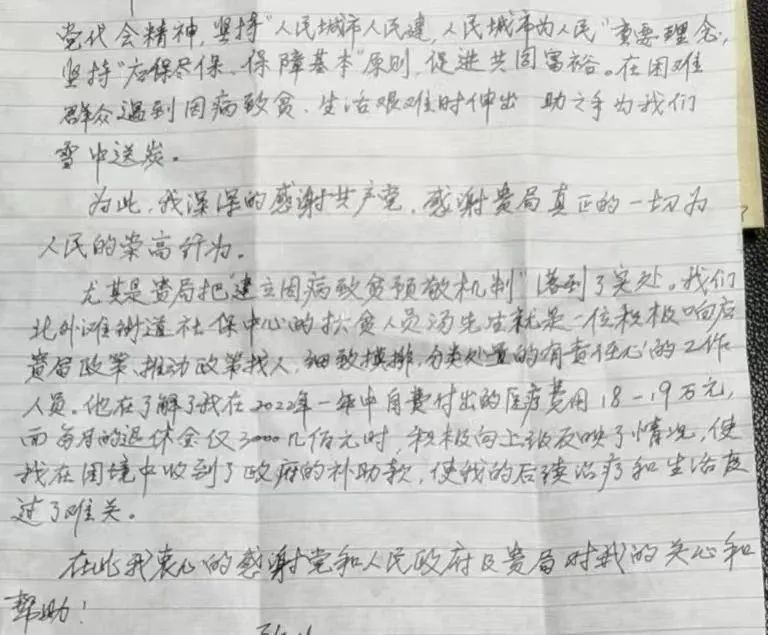 党代会精神，坚持"人民城市人民建，人民城市为人民"重要理念，
坚持"应保尽保、保障基本"原则，促进共同富裕。在困难
群众遇到因病致贫、生活艰难时伸出 助之手为我们
雪中送炭。
为此，我深深的感谢共产党，感谢贵局真正的一切为
人民的崇高行为。
尤其是贵局把"建立因病致贫预警机制"落到了实处。我们
北外滩街道社保中心的扶贫人员汤先生就是一位积极响应
贵局政策、推动政策找人，细致摸排，分类处置的有责任心的工作
人员。他在了解了我在2022年一年中自费付出的医疗费用18-19万元，
而每月的退休金仅3000几佰元时 积极向上级反映了情况，使
我在困境中收到了政府的补助款，使我的后续治疗和生活度
过了难关。
在此我衷心的感谢党和人民政府及贵局对我的关心和
帮助！